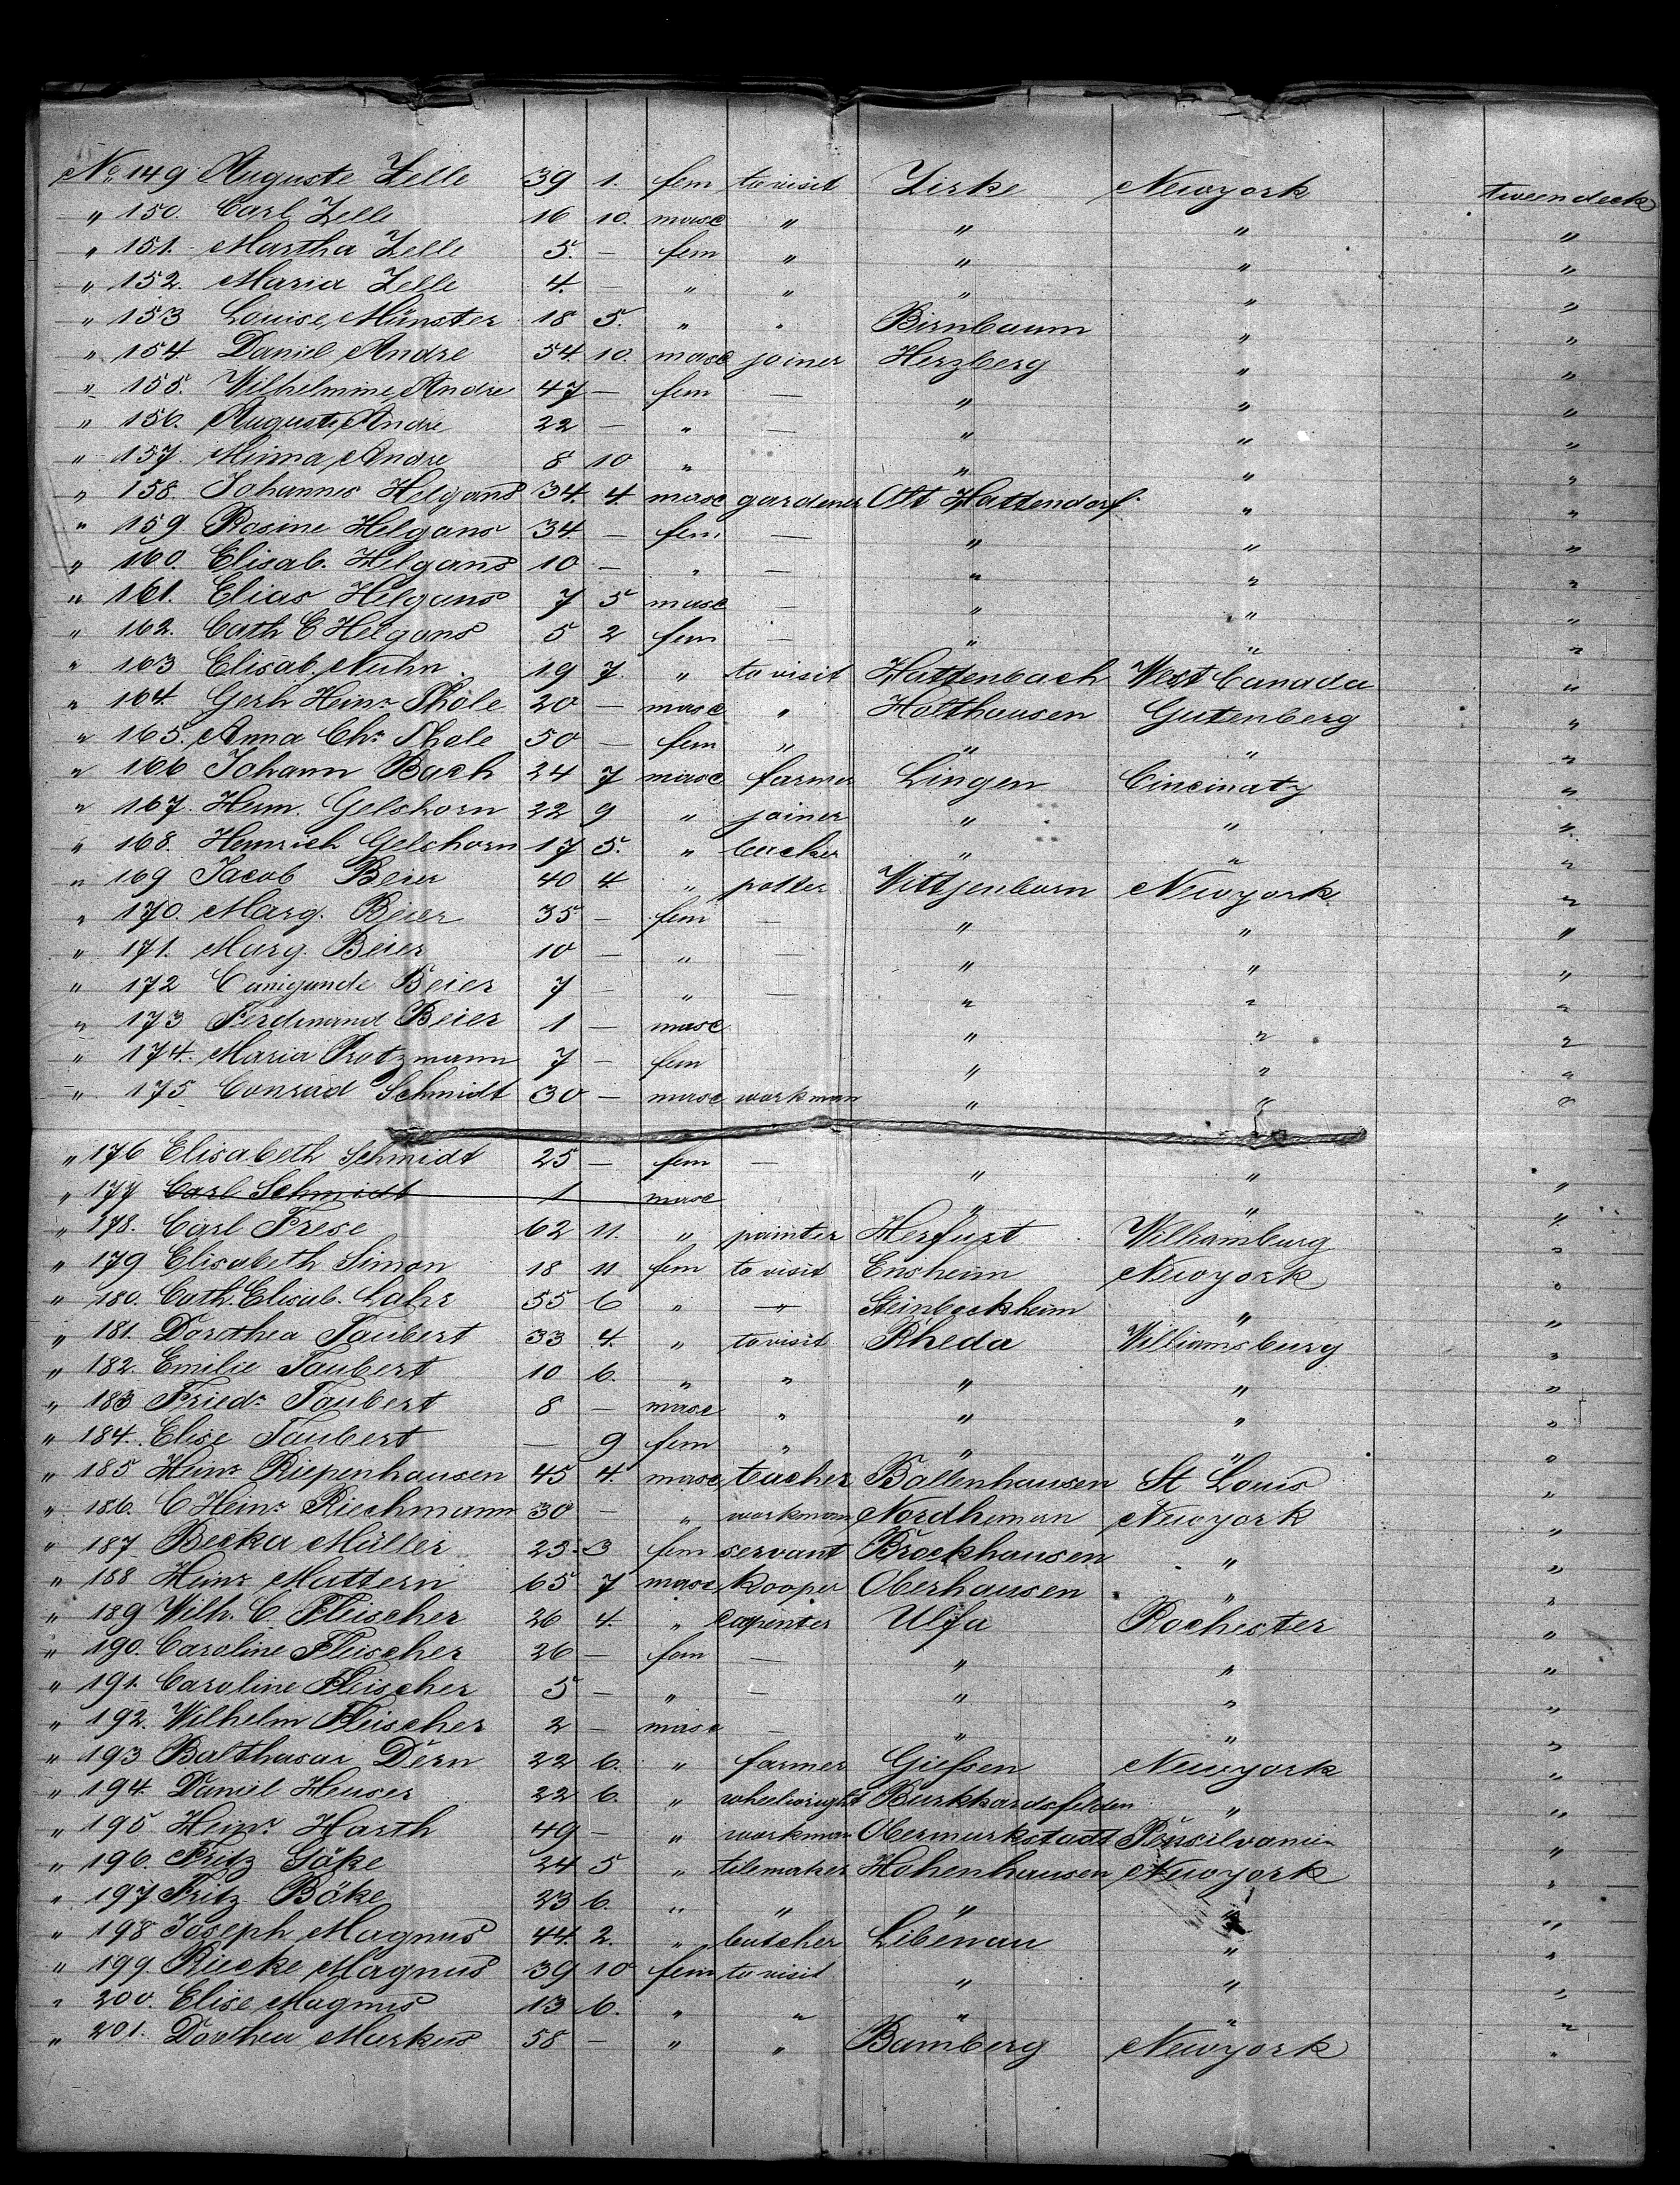 No. 149 Auguste Zelle 39 1. fem to visit Zirke Newyork tween deck
" 150. Carl Zelle 16 10. masc " " " "
" 151. Martha Zelle 5. — fem " " " "
" 152. Maria Zelle 4. — " " " " "
" 153 Louise Münster 18 5. " " Birnbaum " "
" 154 Daniel Andre 54. 10. masc joiner Herzberg " "
" 155. Wilhelmine Andre 47 — fem — " " "
" 156. Auguste Andre 22 — " — " " "
" 157. Minna Andre 8 10 " " " "
" 158. Johannes Helgans 34. 4. masc gardener Alt Hattendorf " "
" 159 Rosine Helgans 34 — fem — " " "
" 160. Elisab. Helgans 10 — " — " " "
" 161. Elias Helgans 7 5 masc — " " "
" 162. Cath C Helgans 5 2 fem — " " "
" 163 Elisab. Nuhn 19 7. " to visit Hattenbach West Canada "
" 164. Gerh Heinr Thole 20 — masc " Holthausen Gutenberg "
" 165. Anna Chr. Thole 50 — fem " " " "
" 166 Johann Bach 24 7 masc farmer Lingen Cincinaty "
" 167. Herm. Gelshorn 22 9 " joiner " " "
" 168. Heinrich Gelshorn 17 5. " backer " " "
" 169 Jacob Beier 40 4. " potter Wittjenborn Newyork "
" 170. Marg. Beier 35 — fem — " " "
" 171. Marg. Beier 10 — " — " " "
" 172 Canigunde Beier 7 — " — " " "
" 173 Ferdinand Beier 1 — masc " " "
" 174. Maria Protzmann 7 — fem " " "
" 175 Conrad Schmidt 30 — masc workman " " "
" 176 Elisabeth Schmidt 25 — fem — " " "
" 177 Carl Schmidt 1 masc " " "
" 178. Carl Frese 62 11. " painter Herfurt Williamburg "
" 179 Elisabeth Simon 18 11 fem to visit Ensheim Newyork "
" 180. Cath. Elisab. Lahr 55 6 " — Steinbockheim " "
" 181. Dorothea Taubert 33 4. " to visit Rheda Williamsburg "
" 182. Emilie Taubert 10 6. " " " " "
" 183 Friedr. Taubert 8 — masc " " " "
" 184. Elise Taubert — 9 fem " " " "
" 185 Heinr Riepenhausen 45 4. masc teacher Ballenhausen St Louis "
" 186. C Heinr. Riechmann 30 — " workman Nordheman Newyork "
" 187 Becka Müller 25. 3 fem servant Brockhausen " "
" 188 Heinr Mattern 65 7 masc kooper Oberhausen " "
" 189 Wilh. C. Fleischer 26 4. " capenter Ulfa Rochester "
" 190. Caroline Fleischer 26 — fem — " " "
" 191. Caroline Fleischer 5 — " — " " "
" 192. Wilhelm Fleischer 2 — masc — " " "
" 193 Balthasar Dern 22 6. " farmer Giefsen Newyork "
" 194. Daniel Heuser 22 6. " wheelwright Burkhardsfelden " "
" 195 Heinr. Harth 49 — " workman Obermurkstadt Pensilvanien "
" 196. Fritz Göke 24 5 " tilemaker Hohenhausen Newyork "
" 197 Fritz Böke 23 6. " " " " "
" 198 Joseph Magnus 44. 2. " butcher Libenau " "
" 199. Riecke Magnus 39 10 fem to visit " " "
" 200. Elise Magnus 13 6. " " " " "
" 201. Dorthea Markus 58 — " " Bamberg Newyork "